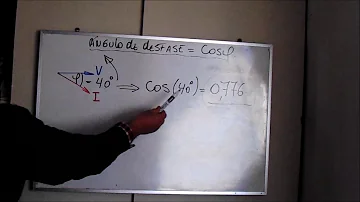 ÁNGULO DE DESFASE = COSφ
V
φ -40°
I
⇒ COS(40°) = 0,776